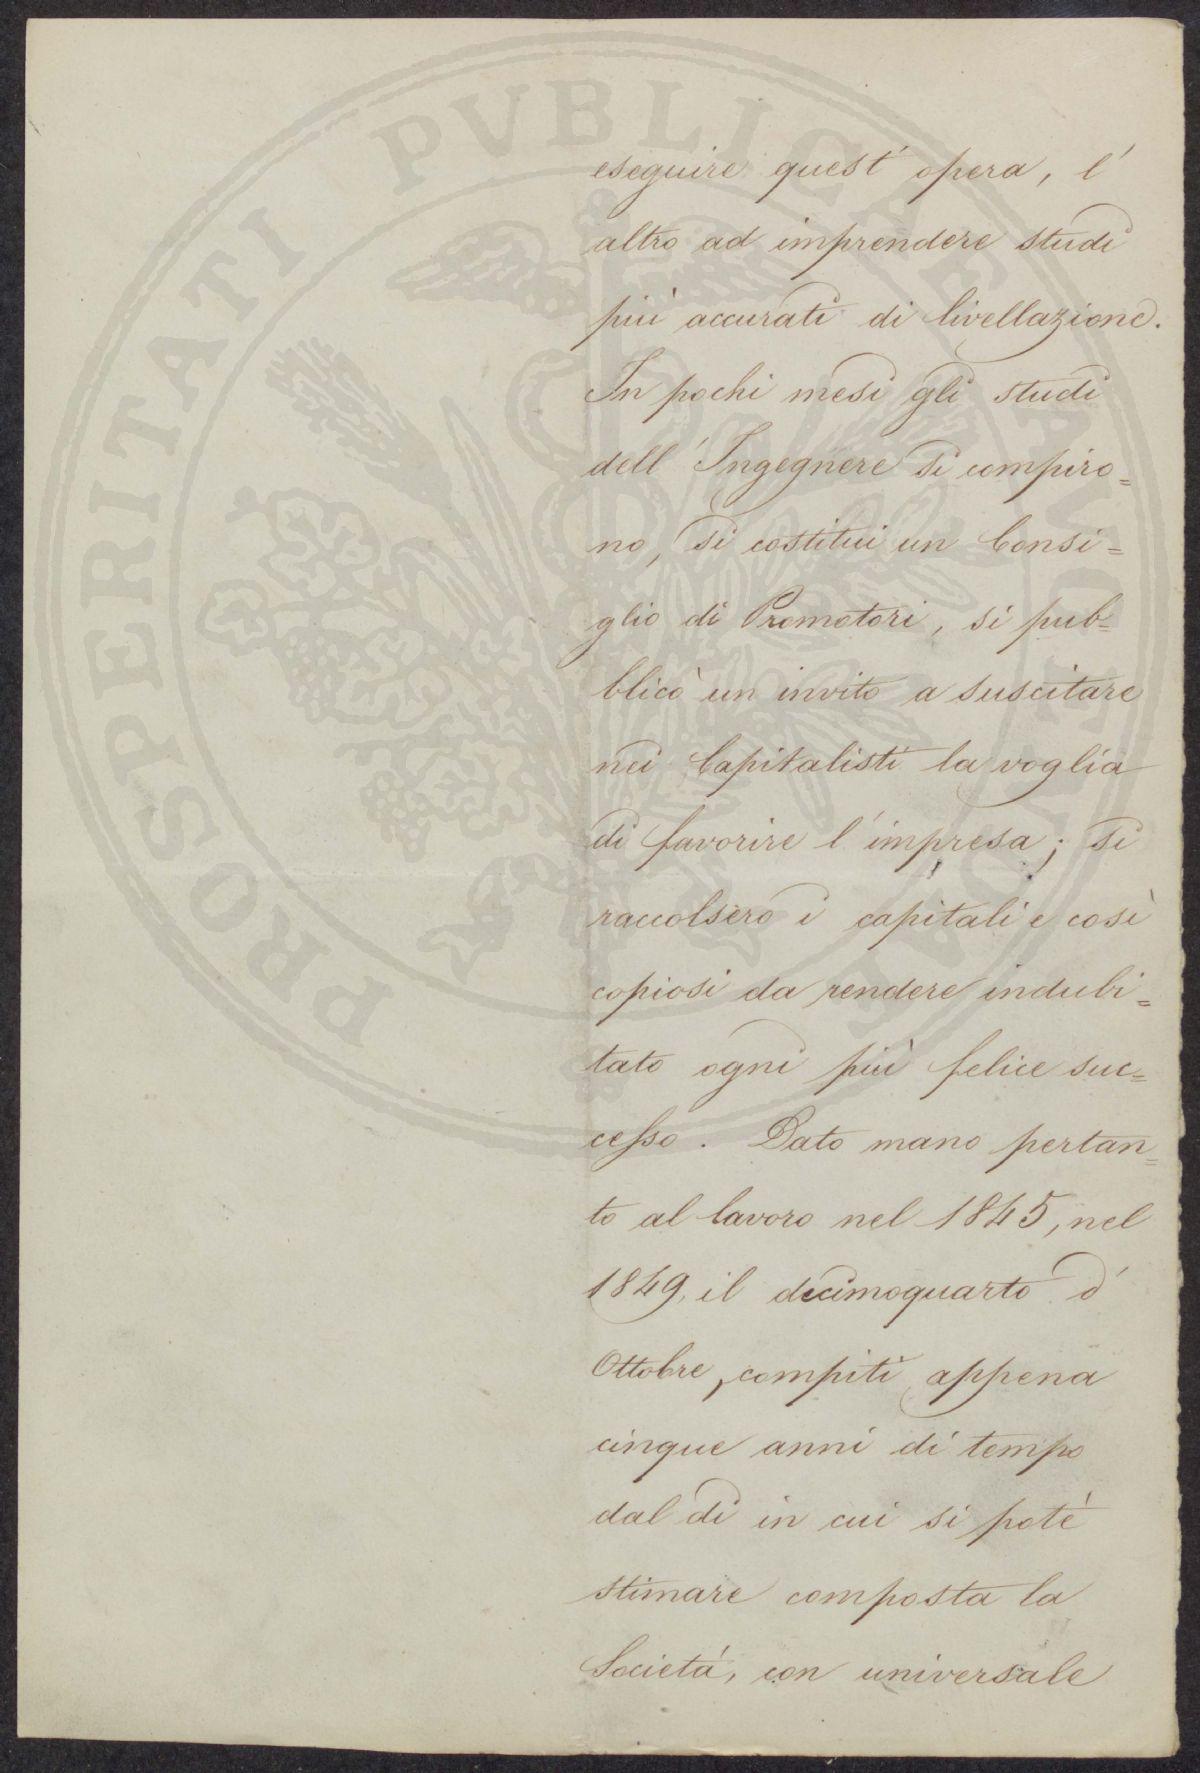 eseguire quest' opera, l'
altro ad imprendere studi
più accurati di livellazione.
In pochi mesi gli studi
dell' Ingegnere si compiro=
no, si costitui un Consi=
glio di Promotori, si pub=
blicò un invito a suscitare
nei Capitalisti la voglia
di favorire l'impresa; si
raccolsero i capitali e così
copiosi da rendere indubi=
tato ogni più felice suc=
cesso. Dato mano pertan=
to al lavoro nel 1845, nel
1849, il decimoquarto d'
Ottobre, compiti appena
cinque anni di tempo
dal dì in cui si potè
stimare composta la
Società, con universale
PROSPERITATI PVBLICAE AVGENDAE